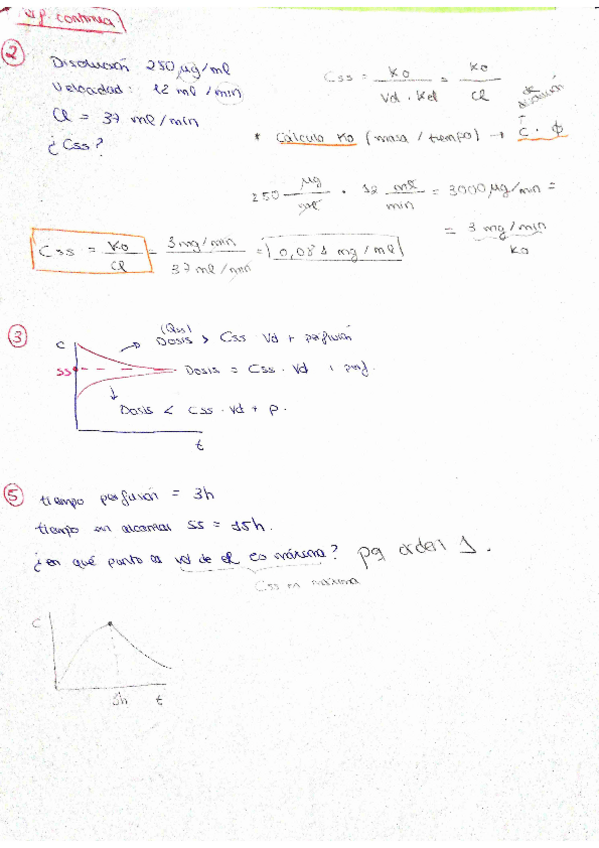 p. continua
②
Disolución 250 µg/ml
Velocidad: 12 ml/min
Cl = 37 ml/min
¿Css?
Css = Ko / Vd · Kel = Ko / Cl
* Cálculo Ko (masa / tiempo) → C · Φ
de disolución
250 µg/ml · 12 ml/min = 3000 µg/min =
= 3 mg/min
Ko
Css = Ko / Cl = 3 mg/min / 37 ml/min = 0,081 mg/ml
③
C
(Qss)
Dosis > Css Vd + perfusión
SS
Dosis = Css · Vd + perf.
Dosis < Css · Vd + p.
t
⑤
tiempo perfusión = 3h
tiempo en alcanzar SS = 15h.
¿en qué punto la vd de el es máxima? pq orden 1.
Css es máxima
C
3h
t